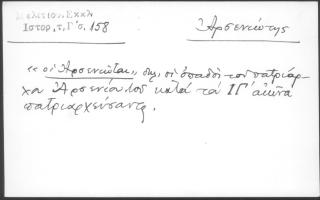 Μελετίου. Εκκλ
Ιστορ, τ, Γ′ σ. 158
Ἀρσενιώτης
«οἱ Ἀρσενιῶται», δηλ. οἱ ὀπαδοὶ τοῦ πατριάρ-
χου Ἀρσενίου τοῦ κατά τό ΙΓ′ αἰῶνα
πατριαρχεύσαντος.